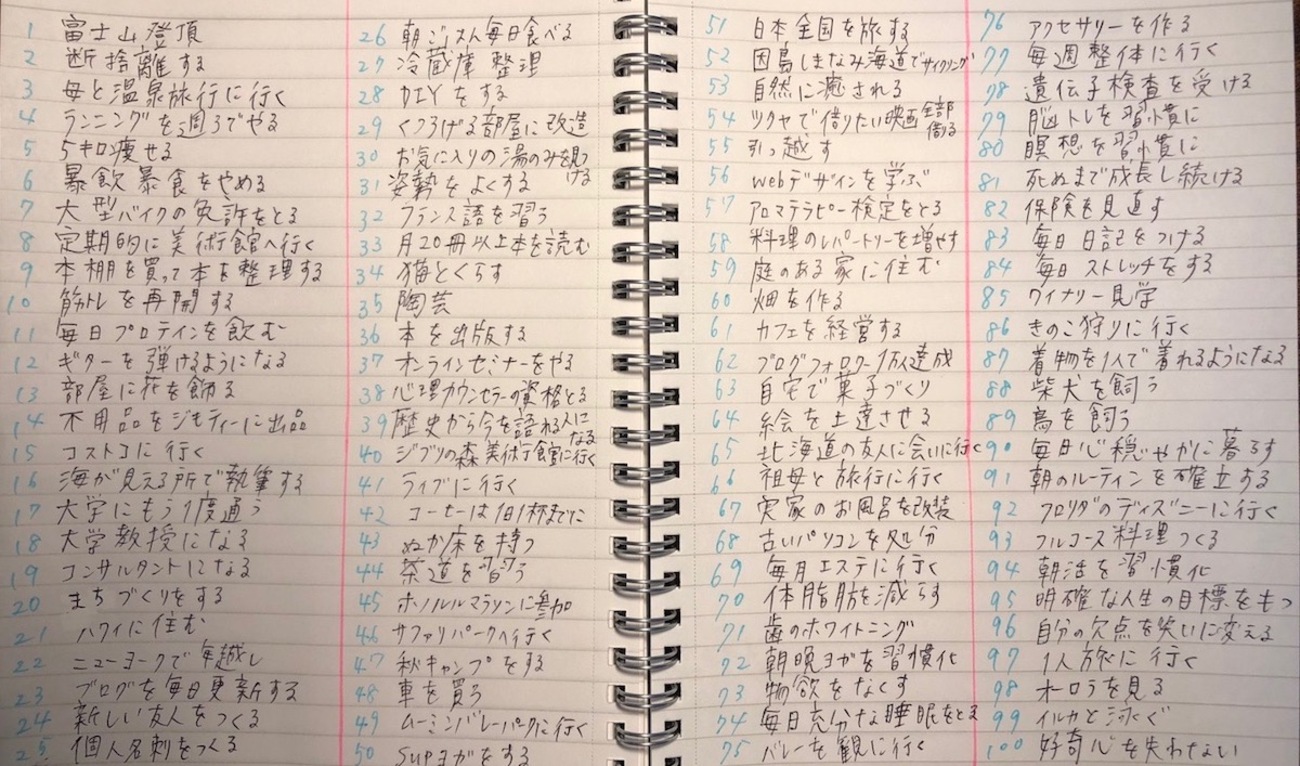 1 富士山登頂
2 断捨離する
3 母と温泉旅行に行く
4 ランニングを週3でやる
5 5キロ痩せる
6 暴飲暴食をやめる
7 大型バイクの免許をとる
8 定期的に美術館へ行く
9 本棚を買って本を整理する
10 筋トレを再開する
11 毎日プロテインを飲む
12 ギターを弾けるようになる
13 部屋に花を飾る
14 不用品をジモティーに出品
15 コストコに行く
16 海が見える所で執筆する
17 大学にもう1度通う
18 大学教授になる
19 コンサルタントになる
20 まちづくりをする
21 ハワイに住む
22 ニューヨークで年越し
23 ブログを毎日更新する
24 新しい友人をつくる
25 個人名刺をつくる
26 朝ごはん毎日食べる
27 冷蔵庫整理
28 DIYをする
29 くつろげる部屋に改造
30 お気に入りの湯のみを見つける
31 姿勢をよくする
32 フランス語を習う
33 月20冊以上本を読む
34 猫とくらす
35 陶芸
36 本を出版する
37 オンラインセミナーをやる
38 心理カウンセラーの資格とる
39 歴史から今を語れる人になる
40 ジブリの森美術館に行く
41 ライブに行く
42 コーヒーは1日1杯までに
43 ぬか床を持つ
44 茶道を習う
45 ホノルルマラソンに参加
46 サファリパークへ行く
47 秋キャンプをする
48 車を買う
49 ムーミンバレーパークに行く
50 SUPヨガをする
51 日本全国を旅する
52 因島しまなみ海道でサイクリング
53 自然に癒される
54 ツタヤで借りたい映画全部借りる
55 引っ越す
56 webデザインを学ぶ
57 アロマテラピー検定をとる
58 料理のレパートリーを増やす
59 庭のある家に住む
60 畑を作る
61 カフェを経営する
62 ブログフォロワー1万人達成
63 自宅で菓子づくり
64 絵を上達させる
65 北海道の友人に会いに行く
66 祖母と旅行に行く
67 実家のお風呂を改装
68 古いパソコンを処分
69 毎月エステに行く
70 体脂肪を減らす
71 歯のホワイトニング
72 朝晩ヨガを習慣化
73 物欲をなくす
74 毎日充分な睡眠をとる
75 バレーを観に行く
76 アクセサリーを作る
77 毎週整体に行く
78 遺伝子検査を受ける
79 脳トレを習慣に
80 瞑想を習慣に
81 死ぬまで成長し続ける
82 保険を見直す
83 毎日日記をつける
84 毎日ストレッチをする
85 ワイナリー見学
86 きのこ狩りに行く
87 着物を1人で着れるようになる
88 柴犬を飼う
89 鳥を飼う
90 毎日心穏やかに暮らす
91 朝のルーティンを確立する
92 フロリダのディズニーに行く
93 フルコース料理つくる
94 朝活を習慣化
95 明確な人生の目標をもつ
96 自分の欠点を笑いに変える
97 1人旅に行く
98 オーロラを見る
99 イルカと泳ぐ
100 好奇心を失わない